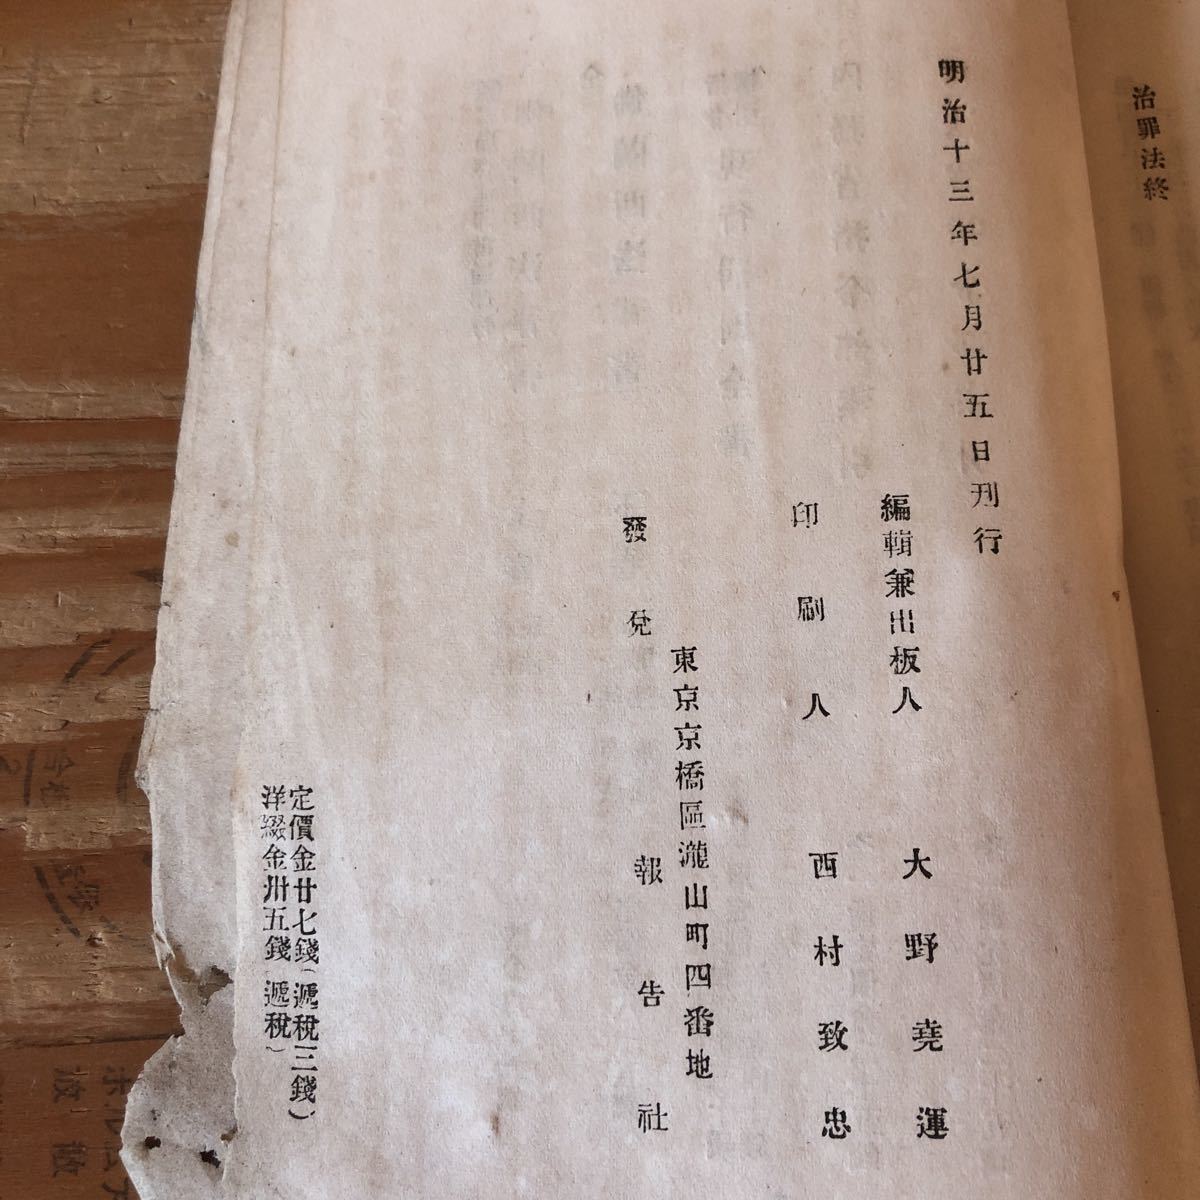 治罪法終
明治十三年七月廿五日刊行
編輯兼出板人　大野堯運
印刷人　西村致忠
東京京橋區瀧山町四番地
發兌　報告社
定價金廿七錢（遞稅三錢）
洋綴金卅五錢（遞稅）